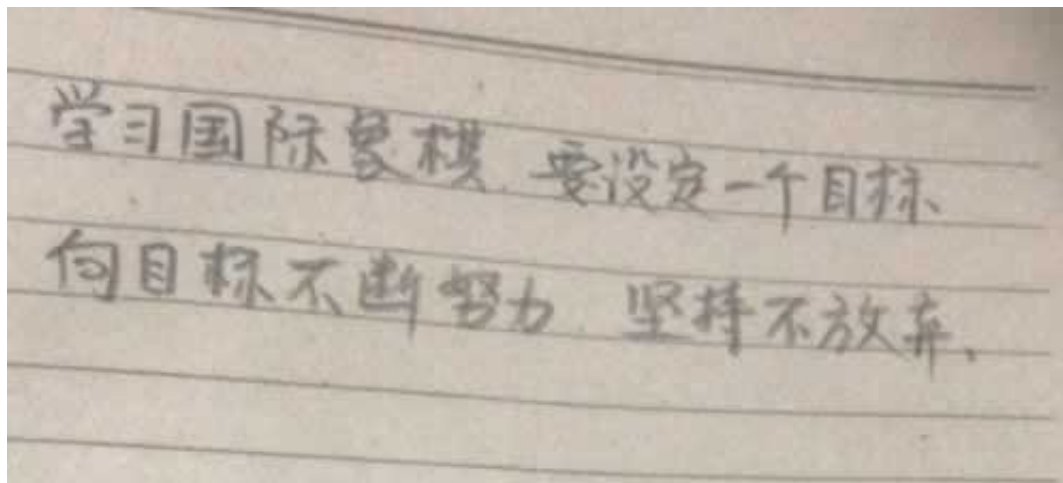 学习国际象棋.要设定一个目标、
向目标不断努力.坚持不放弃.